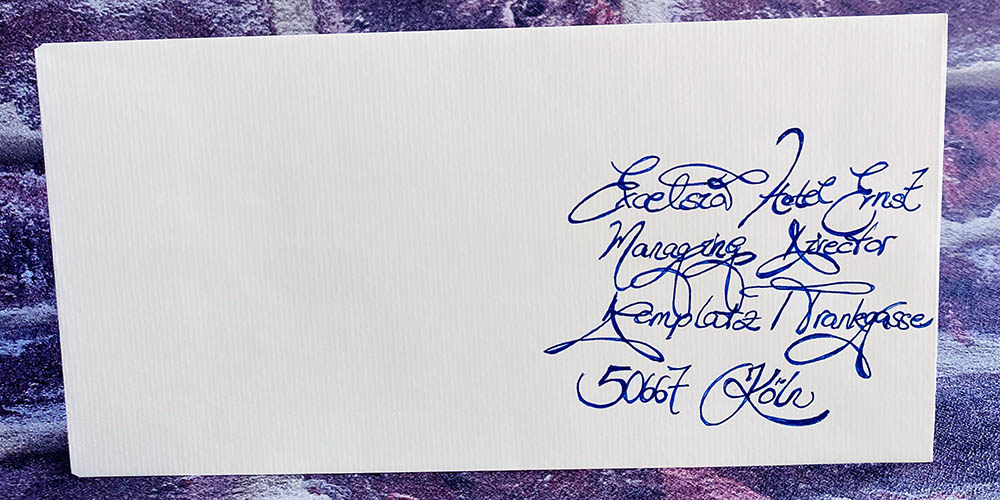 Excelsior Hotel Ernst
Managing Director
Domplatz / Trankgasse
50667 Köln